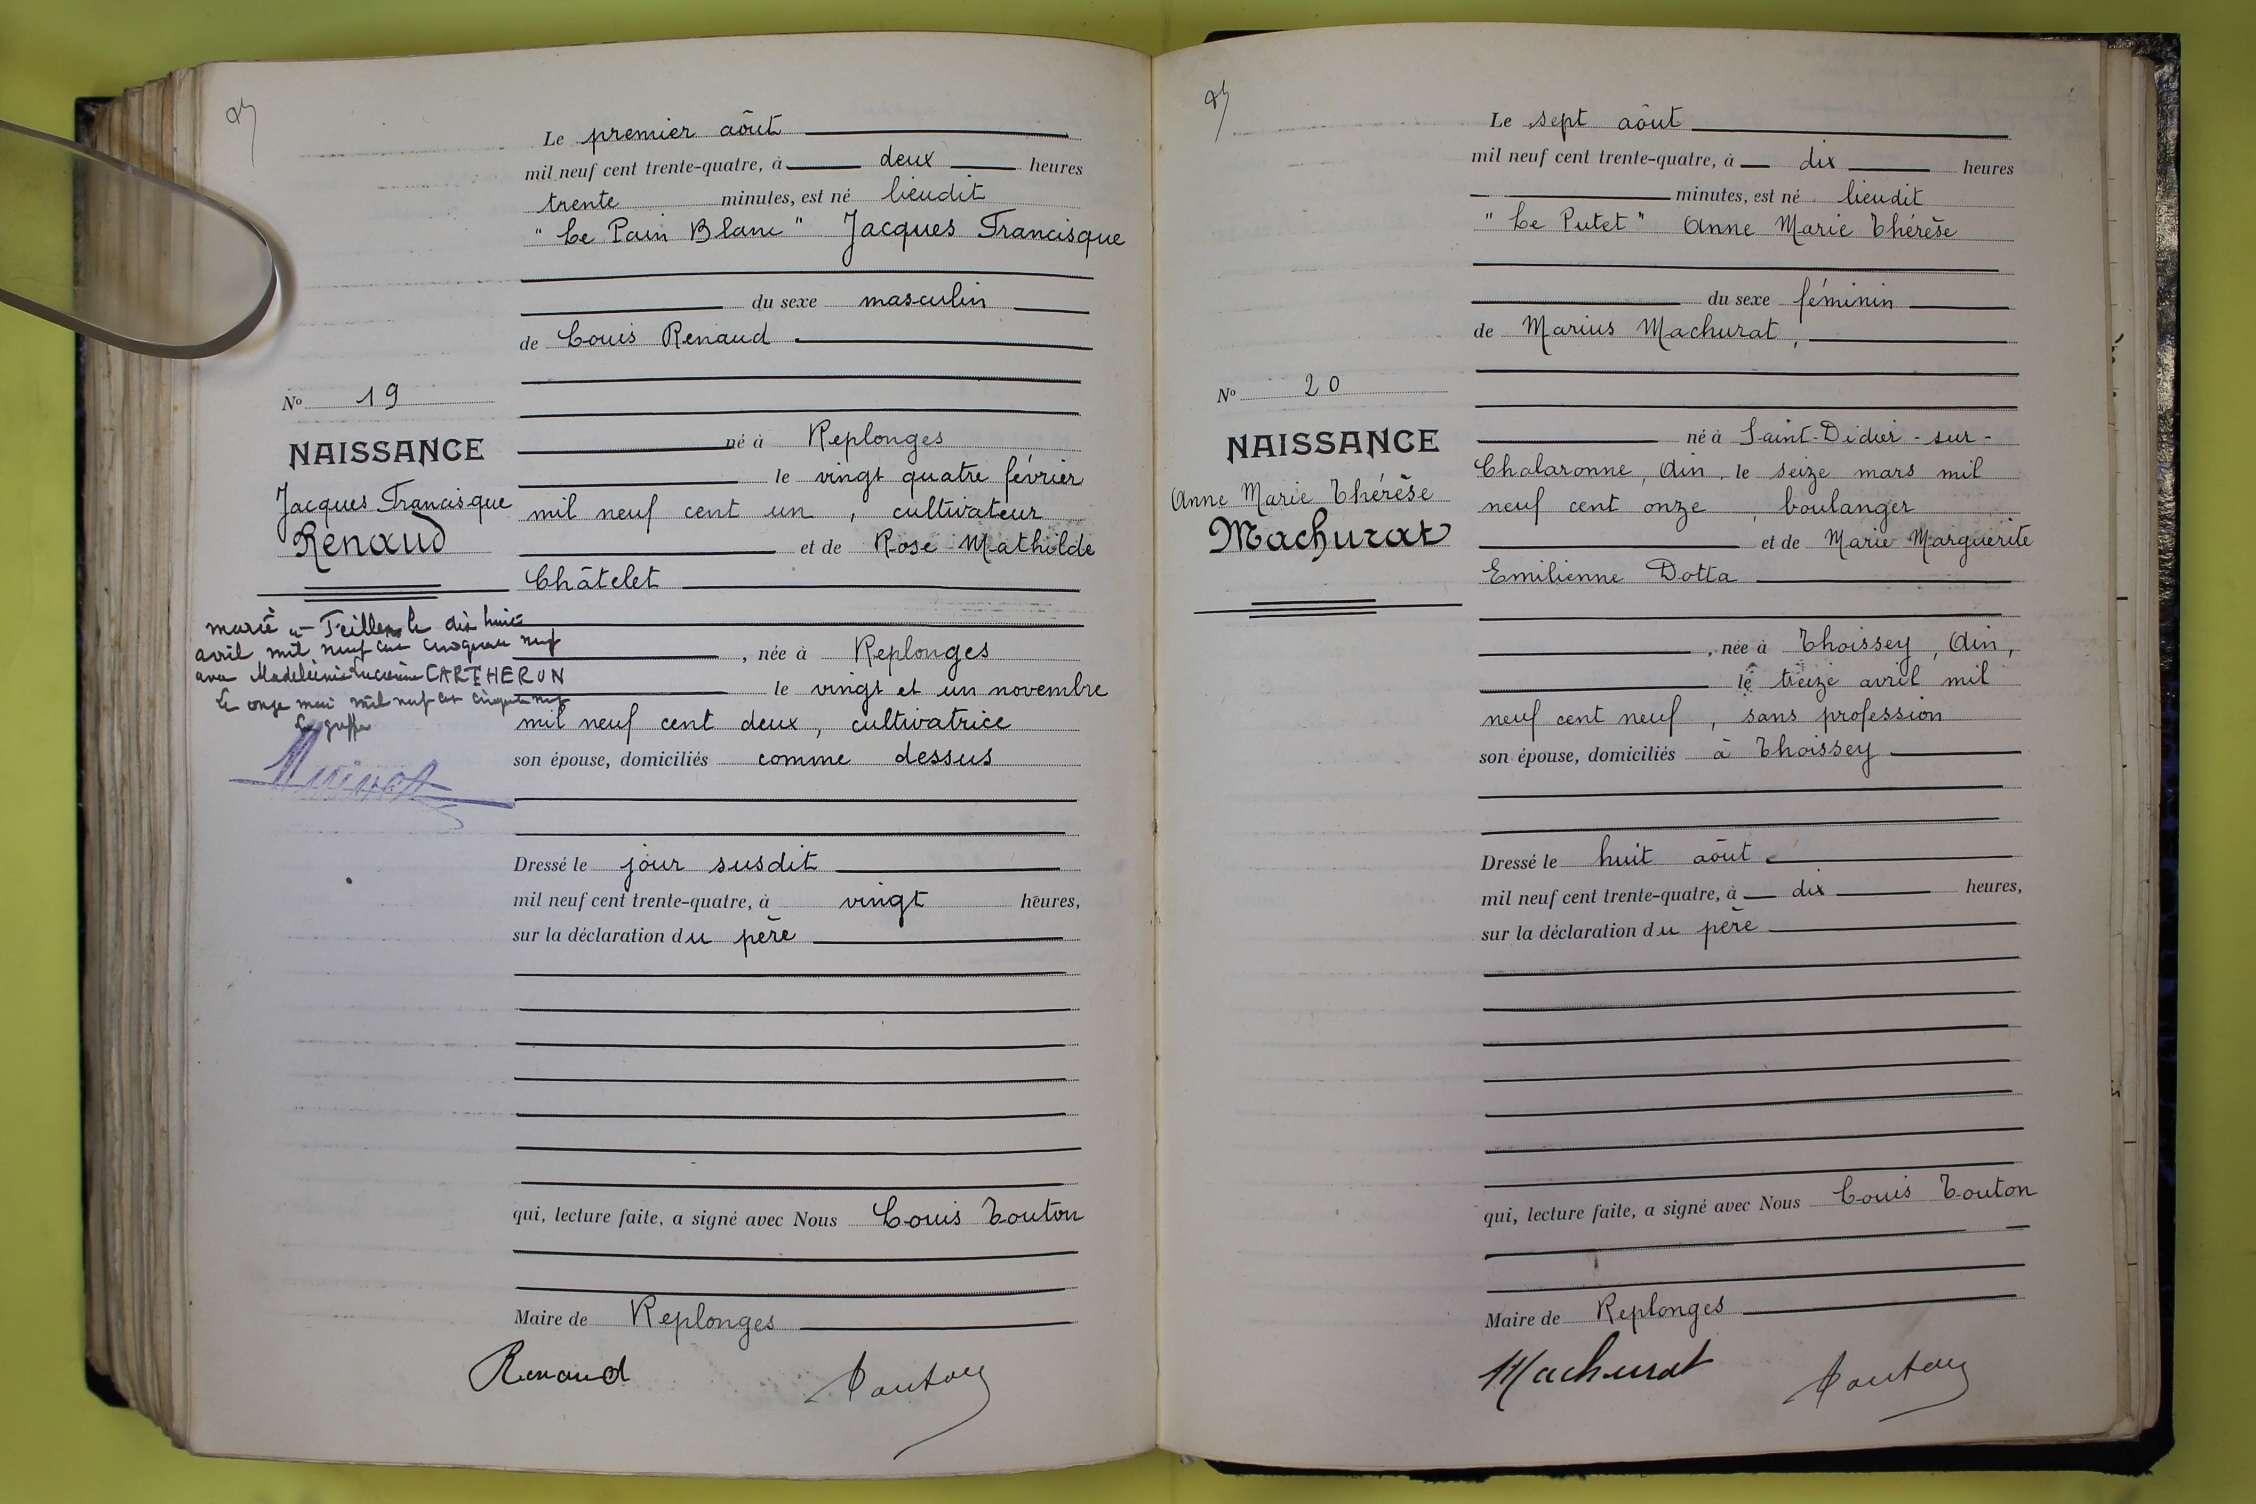 Le premier août
mil neuf cent trente-quatre, à deux heures
trente minutes, est né lieudit
"Le Pain Blanc" Jacques Francisque
du sexe masculin
de Louis Renaud
né à Replonges
le vingt quatre février
mil neuf cent un, cultivateur
et de Rose Mathilde
Châtelet
, née à Replonges
le vingt et un novembre
mil neuf cent deux, cultivatrice
son épouse, domiciliés comme dessus
Dressé le jour susdit
mil neuf cent trente-quatre, à vingt heures,
sur la déclaration du père
qui, lecture faite, a signé avec Nous Louis Touton
Maire de Replonges
Renaud Touton
No 19
NAISSANCE
Jacques Francisque
Renaud
marié à le dix huit
avril mil neuf cent cinquante neuf
avec Madeleine Lucienne CARTHERON
Le onze mai mil neuf cent cinquante neuf
Le greffier
Le sept août
mil neuf cent trente-quatre, à dix heures
minutes, est né lieudit
"Le Putet" Anne Marie Thérèse
du sexe féminin
de Marius Machurat,
né à Saint-Didier-sur-
Chalaronne, Ain, le seize mars mil
neuf cent onze, boulanger
et de Marie Marguerite
Emilienne Dotta
, née à Thoissey, Ain,
le treize avril mil
neuf cent neuf, sans profession
son épouse, domiciliés à Thoissey
Dressé le huit août
mil neuf cent trente-quatre, à dix heures,
sur la déclaration du père
qui, lecture faite, a signé avec Nous Louis Touton
Maire de Replonges
Machurat Touton
No 20
NAISSANCE
Anne Marie Thérèse
Machurat